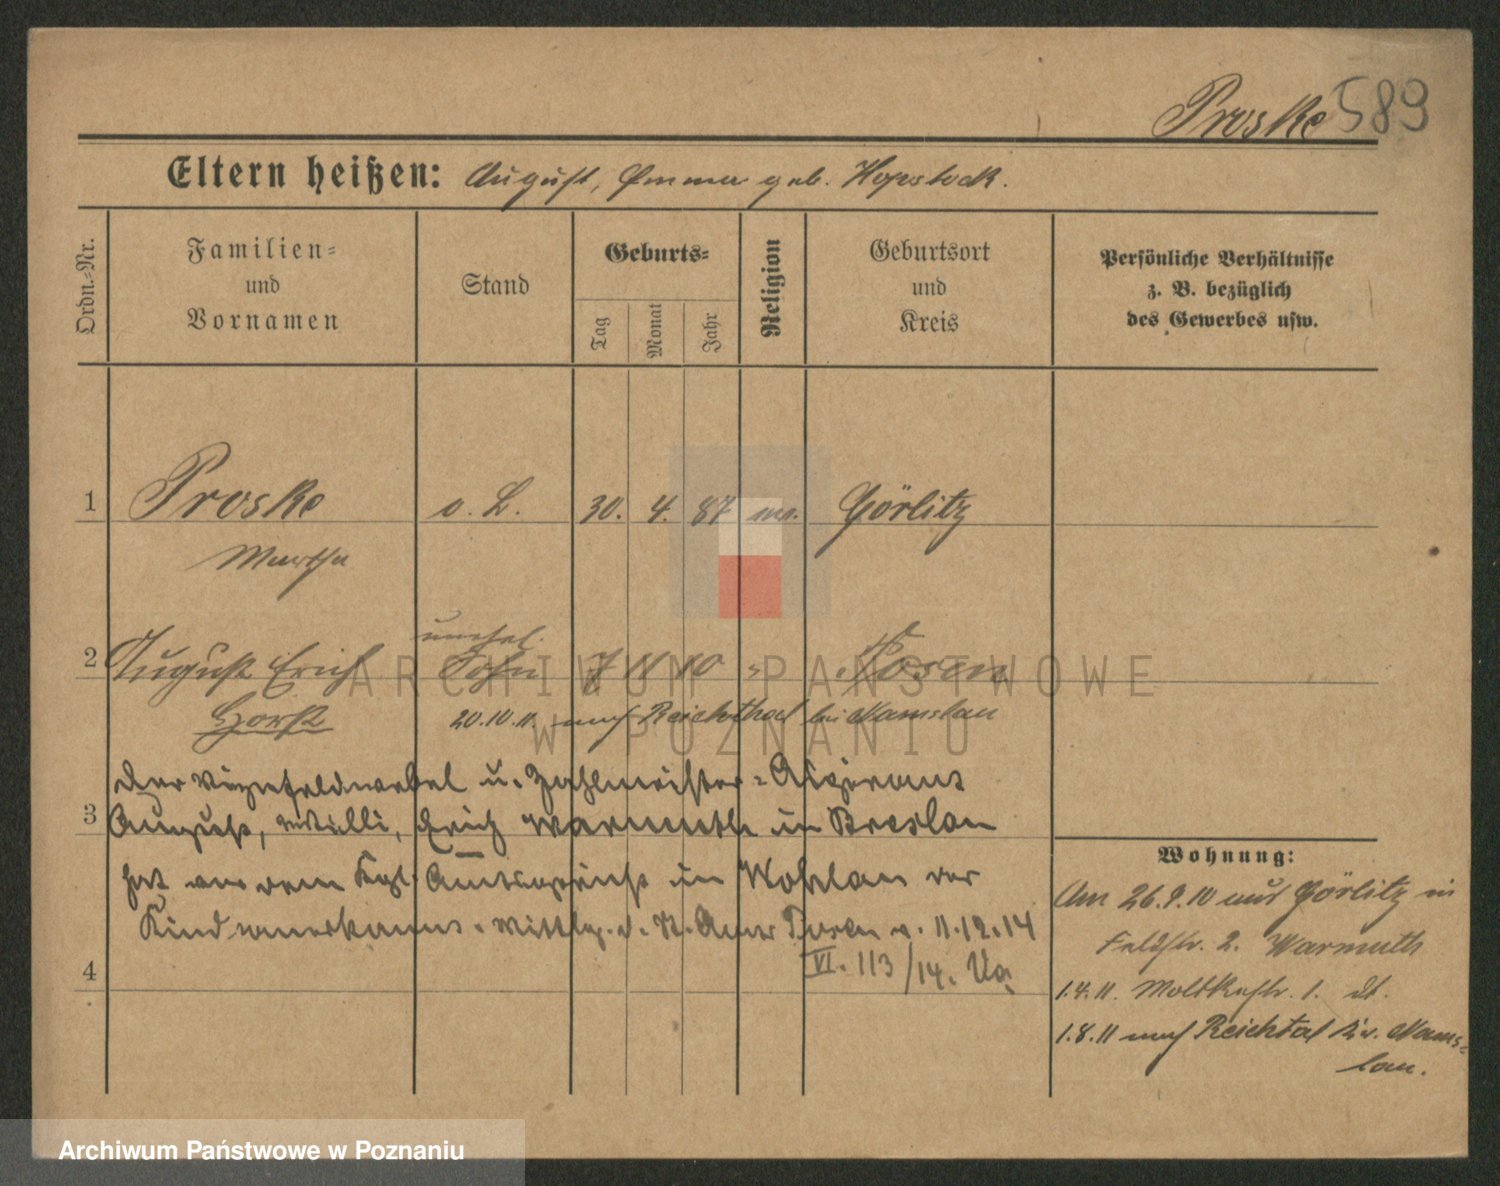 Proske 589
Eltern heißen: August, Emma geb. Hopstock.
Ordn.-Nr.
Familien- und Vornamen
Stand
Geburts-
Tag
Monat
Jahr
Religion
Geburtsort und Kreis
Persönliche Verhältnisse
z. B. bezüglich
des Gewerbes usw.
1 Proske o. B. 30. 4. 87 Görlitz
Martha
unehel.
2 August Erich Sohn 7 11 10 " Posen
Horst 20.10.11. nach Reichthal bei Namslau
der Vizefeldwebel u. Zahlmeister-Aspirant
3 August, Willi, Erich Warmuth in Breslau
hat vor dem Kgl. Amtsgericht in Wohlau das
Kind anerkannt. Mittlg. d. A. Posen v. 11.12.14
4 VI. 113/14.
Wohnung:
Am 26.9.10 aus Görlitz in
Feldstr. 2. Warmuth
1.4.11. Moltkestr. 1. dt.
1.8.11 nach Reichtal Kr. Nams-
lau.
ARCHIWUM PAŃSTWOWE
W POZNANIU
Archiwum Państwowe w Poznaniu